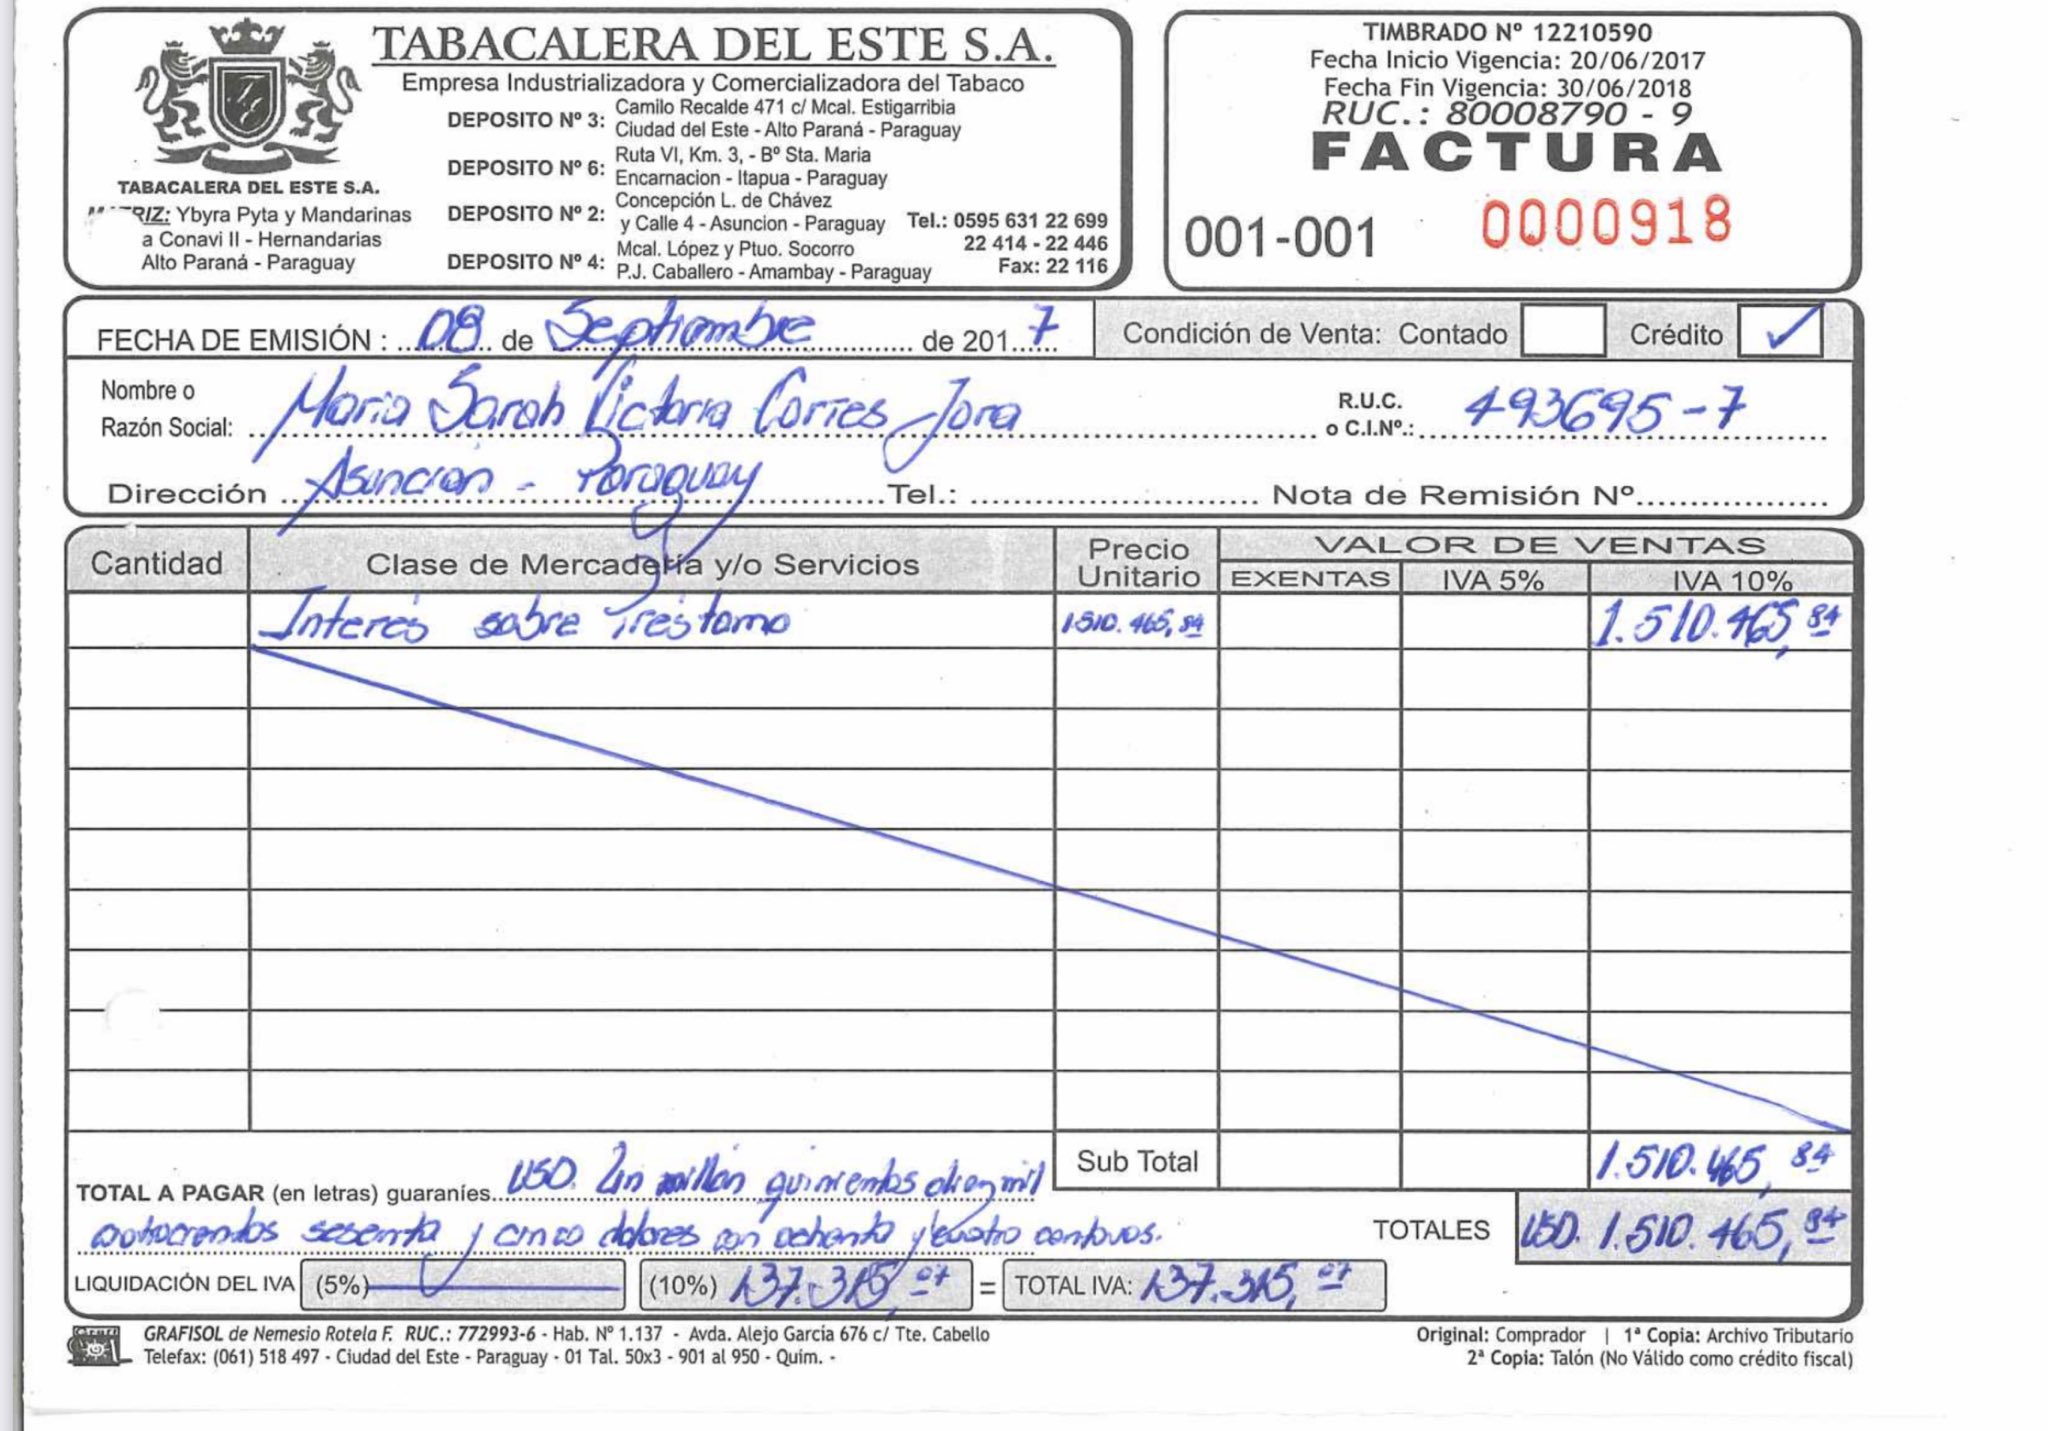 TABACALERA DEL ESTE S.A.
Empresa Industrializadora y Comercializadora del Tabaco
TABACALERA DEL ESTE S.A.
RIZ: Ybyra Pyta y Mandarinas
a Conavi II - Hernandarias
Alto Paraná - Paraguay
DEPOSITO Nº 3: Camilo Recalde 471 c/ Mcal. Estigarribia
Ciudad del Este - Alto Paraná - Paraguay
DEPOSITO Nº 6: Ruta VI, Km. 3, - Bº Sta. Maria
Encarnacion - Itapua - Paraguay
DEPOSITO Nº 2: Concepción L. de Chávez
y Calle 4 - Asuncion - Paraguay
DEPOSITO Nº 4: Mcal. López y Ptuo. Socorro
P.J. Caballero - Amambay - Paraguay
Tel.: 0595 631 22 699
22 414 - 22 446
Fax: 22 116
TIMBRADO Nº 12210590
Fecha Inicio Vigencia: 20/06/2017
Fecha Fin Vigencia: 30/06/2018
RUC.: 80008790 - 9
FACTURA
001-001 0000918
FECHA DE EMISIÓN : 08 de Septiembre de 2017 Condición de Venta: Contado Crédito ✓
Nombre o
Razón Social: Maria Sarah Victoria Corres Jora R.U.C.
o C.I.Nº.: 493695-7
Dirección Asunción - Paraguay Tel.: Nota de Remisión Nº
Cantidad Clase de Mercadería y/o Servicios Precio Unitario VALOR DE VENTAS
EXENTAS IVA 5% IVA 10%
Interés sobre Préstamo 1510.465,84 1.510.465,84
Sub Total 1.510.465,84
TOTAL A PAGAR (en letras) guaraníes USD. Un millón quinientos diez mil
cuatrocientos sesenta y cinco dolares con ochenta y cuatro centavos.
TOTALES USD. 1.510.465,84
LIQUIDACIÓN DEL IVA (5%) (10%) 137.315,07 = TOTAL IVA: 137.315,07
GRAFISOL de Nemesio Rotela F. RUC.: 772993-6 - Hab. Nº 1.137 - Avda. Alejo García 676 c/ Tte. Cabello
Telefax: (061) 518 497 - Ciudad del Este - Paraguay - 01 Tal. 50x3 - 901 al 950 - Quim. -
Original: Comprador | 1ª Copia: Archivo Tributario
2ª Copia: Talón (No Válido como crédito fiscal)